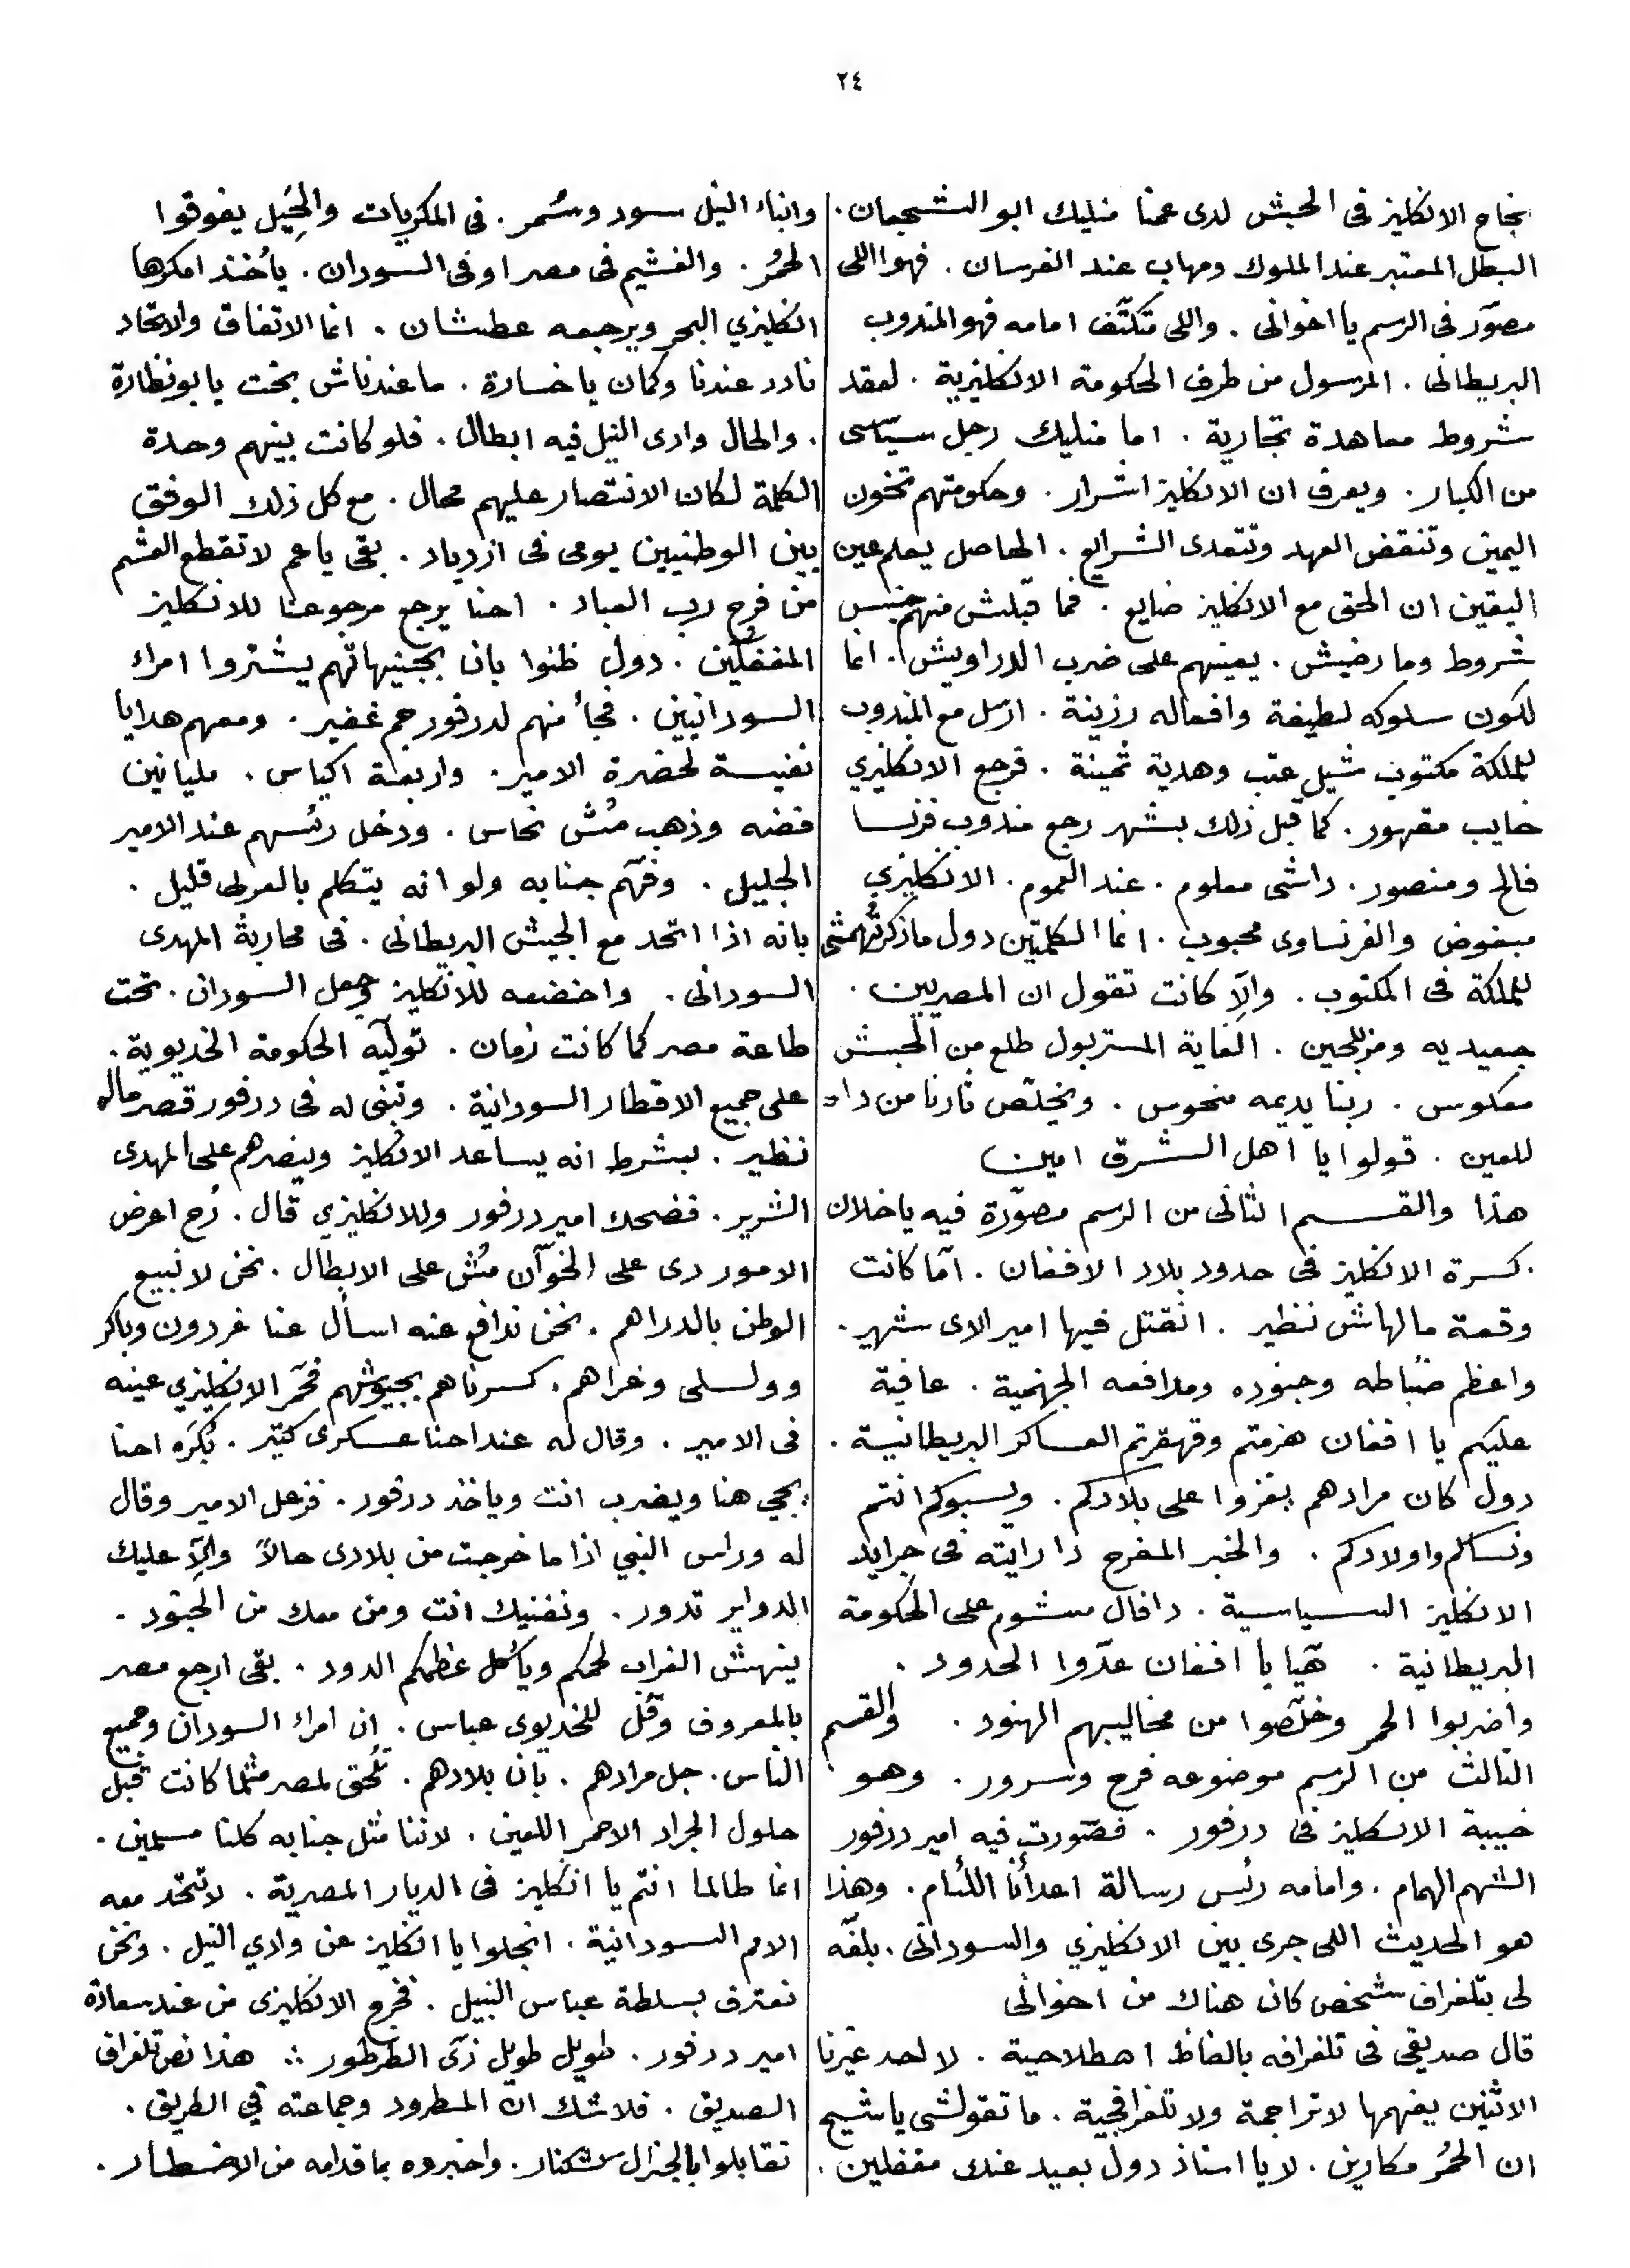 ٢٤
نجاح الانكليز فى الحبش لدى عمنا منليك ابو الشجعان .
البطل المعتبر عند الملوك ومهاب عند الفرسان . فهو اللى
مصوّر فى الرسم يا اخوانى . واللى متكتّف امامه فهو المندوب
البريطانى . المرسول من طرف الحكومة الانكليزية . لعقد
شروط معاهدة تجارية . اما منليك رجل سياسى
من الكبار . ويعرف ان الانكليز اشرار . وحكومتهم تخون
اليمين وتنقض العهد وتتعدى الشرايع . الحاصل يعلم عين
اليقين ان الحق مع الانكليز ضايع . فما قبلش منهم جنس
شروط وما رضيش . يعينهم على ضرب الدراويش . انما
لكون سلوكه لطيفة وافعاله رزينة . ارسل مع المندوب
للملكة مكتوب شيل عتب وهدية ثمينة . فرجع الانكليزي
خايب مقهور . كما قبل ذلك بشهر رجع مندوب فرنسا
فالح ومنصور . داشى معلوم . عند العموم . الانكليزي
مبغوض والفرنساوى محبوب . انما الكلمتين دول ما ذكرتهمشى
للملكة فى المكتوب . والّا كانت تقول ان المصريين .
جعيديه ومزبلحين . الغاية المستر بول طلع من الحبش
معكوس . ربنا يديمه منحوس . ويخلّص تارنا من داد
للعين . قولوا يا اهل الشرق امين
هذا والقسم الثانى من الرسم مصوّرة فيه يا خلان
. كسرة الانكليز فى حدود بلاد الافغان . امّا كانت
وقعة مالهاش نظير . انقتل فيها امير الاى شهير .
واعظم ضباطه وجنوده ومدافعه الجهنمية . عافية
عليكم يا افغان هزمتم وقهقرتم العساكر البريطانية .
دول كان مرادهم يغزوا على بلادكم . ويسبوكم انتم
ونساكم واولادكم . والخبر المفرح دا رايته فى جرايد
الانكليز السياسية . دافال مشوم على الحكومة
البريطانية . هيّا يا افغان عدّوا الحدود .
واضربوا الحمر وخلّصوا من مخاليبهم الهنود . والقسم
الثالث من الرسم موضوعه فرح وسرور . وهو
خيبة الانكليز فى درفور . فصورت فيه امير درفور
الشهم الهمام . وامامه رئس رسالة اعدأنا اللئام . وهذا
هو الحديث اللى جرى بين الانكليزي والسودانى . بلغه
لى بتلغراف شخص كان هناك من اخوانى
قال صديقى فى تلغرافه بالفاظ اصطلاحية . لا احد غيرنا
الاثنين يفهمها لا تراجمة ولا تلغرافجية . ما تقولشى يا شيخ
ان الحمُر مكارين . لا يا استاذ دول بعيد عندك مغفلين .
وابناء النيل سود وسُمر . فى المكريات والحِيَل يفوقوا
الحمُر . والغشيم فى مصر او فى السودان . يأخذ امكرها
انكليزي البحر ويرجعه عطشان . انما الاتفاق والاتحاد
نادر عندنا وكمان يا خسارة . ما عندناش بخت يا بو نظارة
. والحال وادى النيل فيه ابطال . فلو كانت بينهم وحدة
الكلمة لكان الانتصار عليهم محال . مع كل ذلك الوفق
بين الوطنيين يومى فى ازدياد . بقى يا عم لا تقطع العشم
من فرج رب العباد . احنا يرجع مرجوعنا للانكليز
المغفلين . دول ظنوا بان بجنيهاتهم يشتروا امراء
السودانيين . فجأ منهم لدرفور جم غفير . ومعهم هدايا
نفيسة لحضرة الامير . واربعة اكياس . مليانين
فضه وذهب مُش نحاس . ودخل رئسهم عند الامير
الجليل . وفهّم جنابه ولو انه يتكلم بالعربى قليل .
بانه اذا اتحد مع الجيش البريطانى . فى محاربة المهدى
السودانى . واخضعه للانكليز وجعل السودان . تحت
طاعة مصر كما كانت زمان . تولّيه الحكومة الخديوية .
على جميع الاقطار السودانية . وتبنى له فى درفور قصر ماله
نظير . بشرط انه يساعد الانكليز وينصرهم على المهدى
الشرير . فضحك امير درفور وللانكليزي قال . رُح اعرض
الامور دى على الخوّان مُش على الابطال . نحن لا نبيع
الوطن بالدراهم . نحن ندافع عنه اسأل عنا غردون وباكر
وولسلى وغراهم . كسرناهم بجيوشهم فحمّر الانكليزي عينه
فى الامير . وقال له عند احنا عسكرى كتير . بُكرَه احنا
يجي هنا ويضرب انت وياخد درفور . فزعل الامير وقال
له وراس النبي اذا ما خرجت من بلادى حالاً والّا عليك
الدواير تدور . ونفنيك انت ومن معك من الجنود .
ينهش الغراب لحمكم ويأكل عظمكم الدود . بقى ارجع مصر
بالمعروف وقُل للخديوى عباس . ان امراء السودان وجميع
الناس . جل مرادهم . بان بلادهم . تُلحق لمصر مثلما كانت قبل
حلول الجراد الاحمر اللعين . لاننا مثل جنابه كلنا مسلمين .
انما طالما انتم يا انكليز فى الديار المصرية . لا تتحد معه
الامم السودانية . انجلوا يا انكليز عن وادي النيل . ونحن
نعترف بسلطة عباس النبيل . فخرج الانكليزى من عند سعادة
امير درفور . طويل طويل زىّ الطرطور :: هذا نص تلغراف
الصديق . فلا شك ان المطرود وجماعته في الطريق .
تقابلوا بالجنرال كشنار . واخبروه بما قدامه من الاخطار .